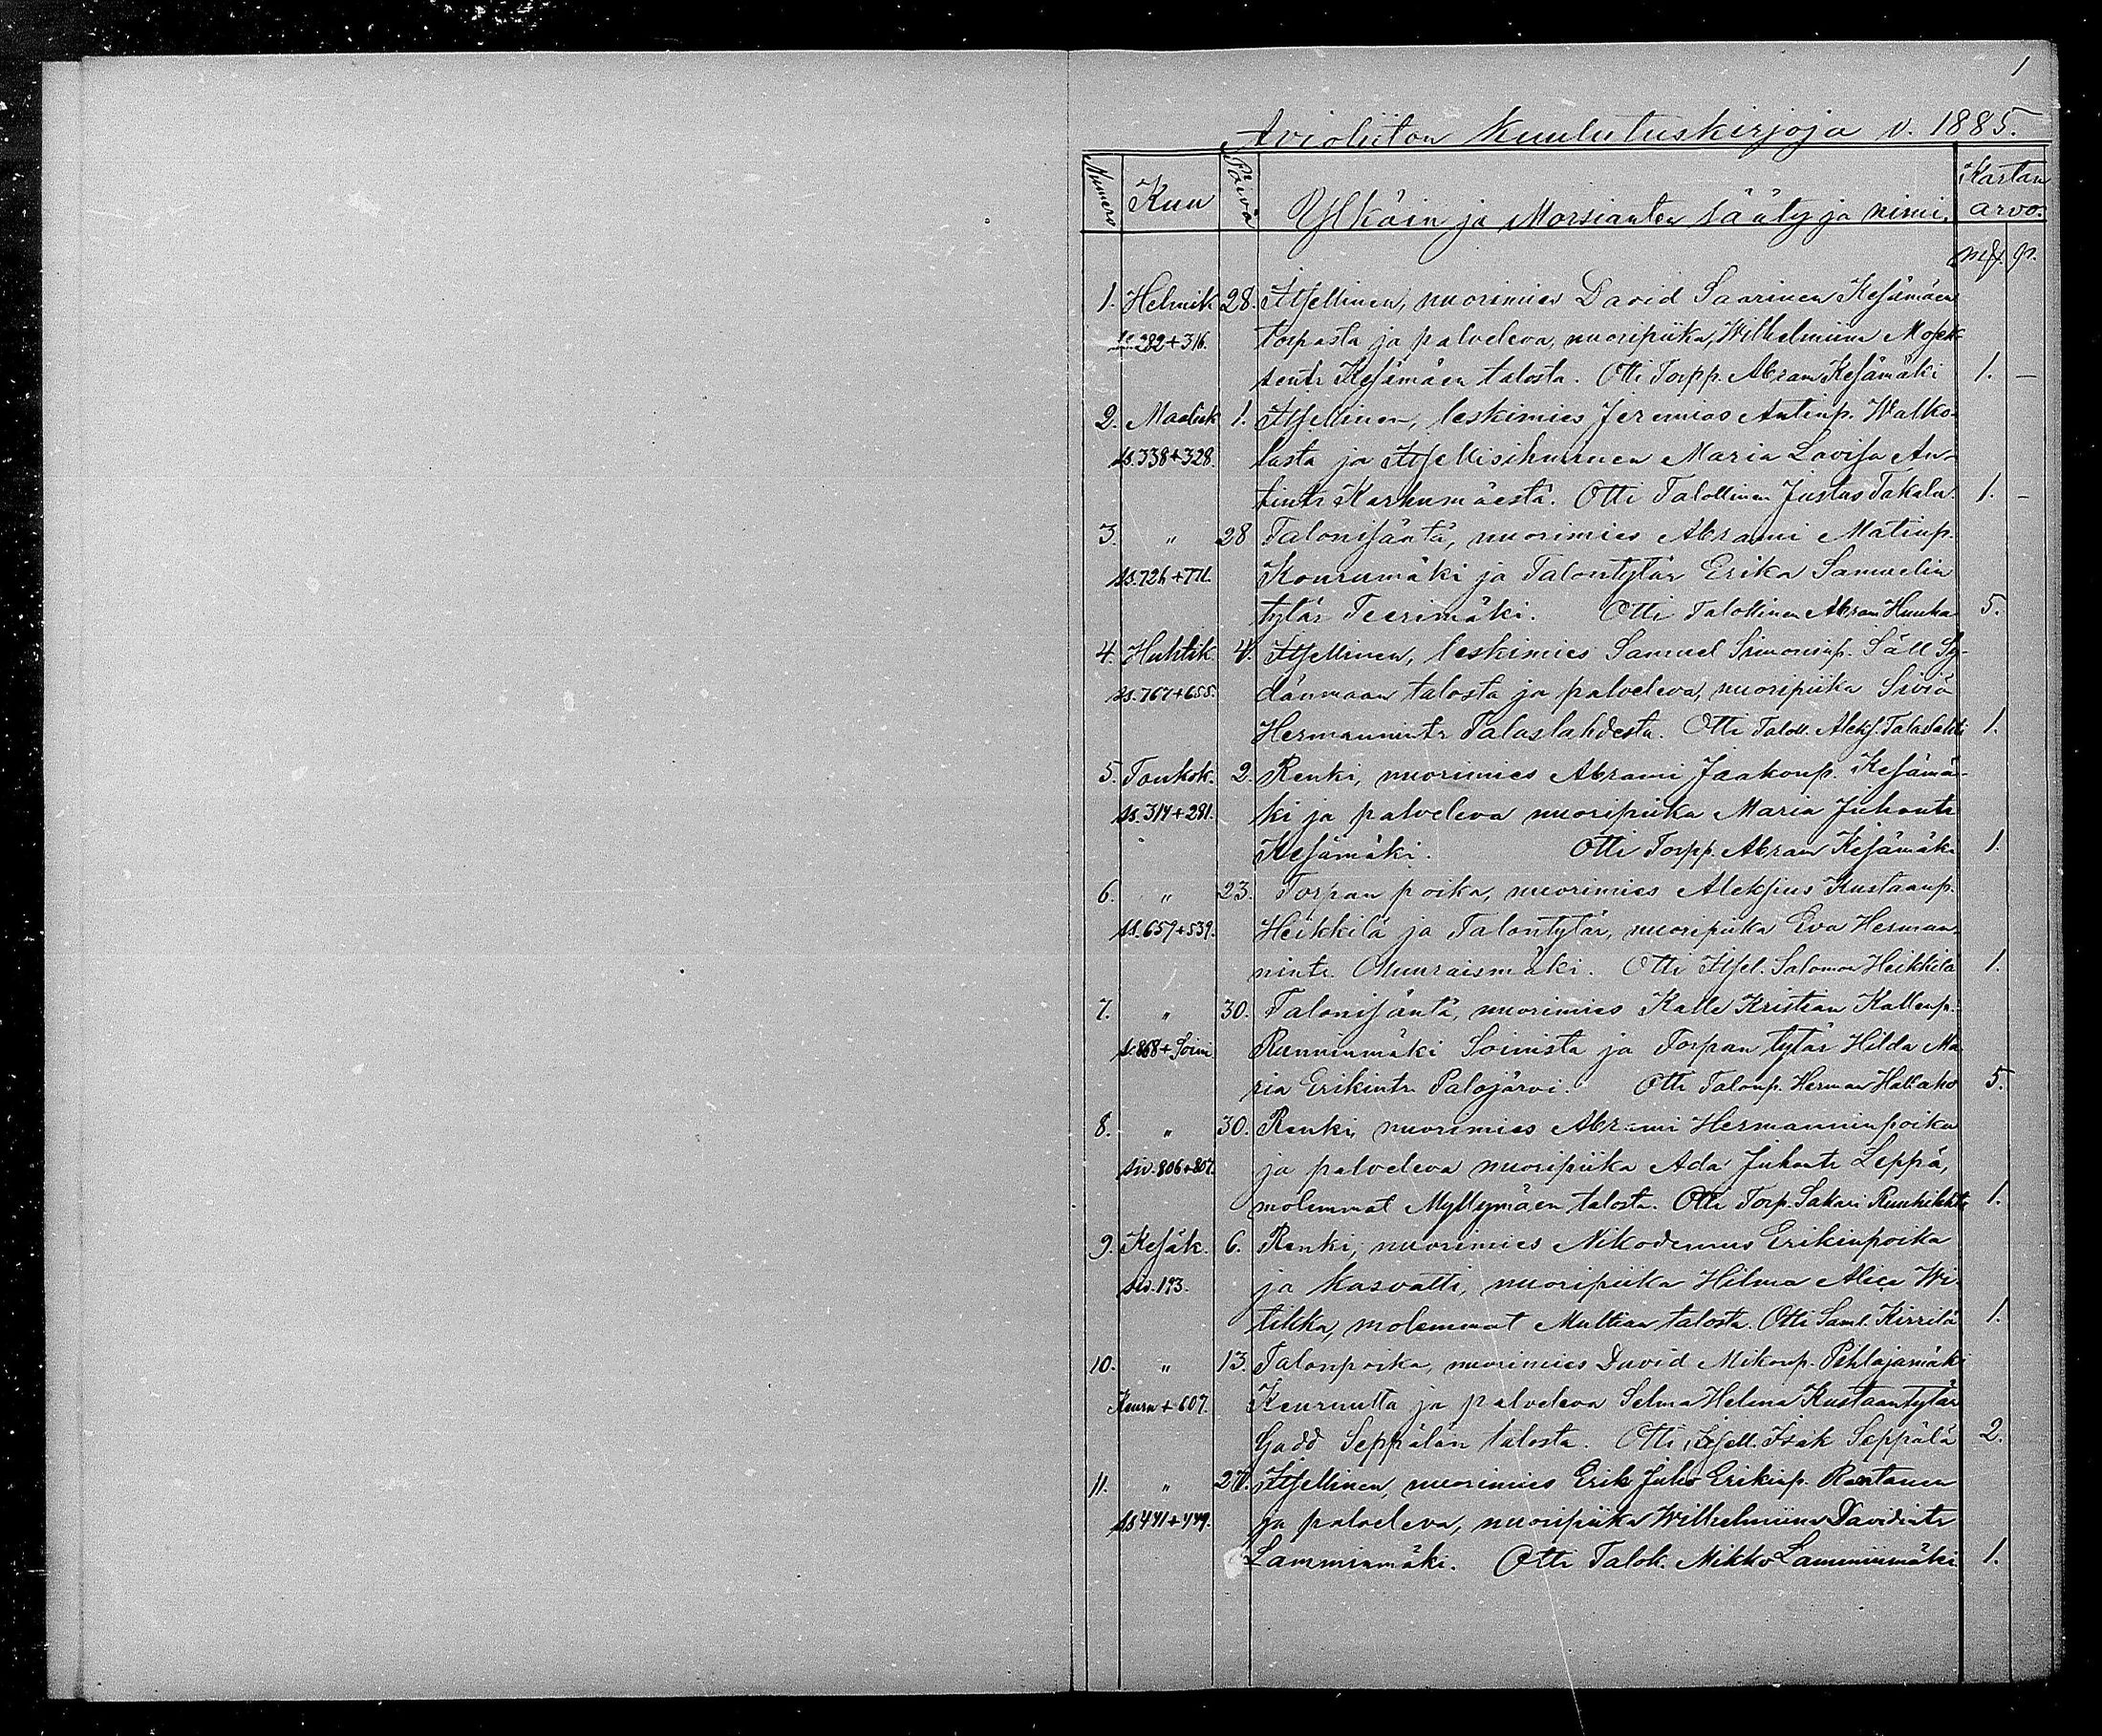 1
Avioliiton Kuulutuskirjoja v. 1885.
Numero Kuu Päivä Ylkäin ja Morsianten sääty ja nimi. Kartan arvo.
mk. p.
1. Helmik 28. Itsellinen, nuorimies David Saarinen Kesämäen
ss. 282+316. torpasta ja palveleva, nuoripiika, Wilhelmiina
Kesämäen talosta. Otti Torpp. Abram Kesämäki 1. –
2. Maalisk 1. Itsellinen, leskimies Jeremias Antinp. Walko-
ss. 338+328. lasta ja Itsellisihminen Maria Lovisa An-
tintr Karhumäestä. Otti Talollinen Justus Takala. 1. –
3. " 28 Talonisäntä, nuorimies Abrami Matinp.
ss. 726+771. Kourumäki ja Talontytär Erika Samuelin
tytär Teerimäki. Otti Talollinen Abram Huuka 5.
4. Huhtik. 4. Itsellinen, leskimies Samuel Simoninp. Säll Sy-
ss. 767+655. dänmaan talosta ja palveleva, nuoripiika Siviä
Hermannintr Talaslahdesta. Otti Taloll. Aleks. Talaslahti 1.
5. Toukok. 2. Renki, nuorimies Abrami Jaakonp. Kesämä-
ss. 314+281. ki ja palveleva nuoripiika Maria Juhontr
Kesämäki. Otti Torpp. Abram Kesämäki 1.
6. " 23. Torpan poika, nuorimies Aleksius Kustaanp.
ss. 657+539. Heikkilä ja Talontytär, nuoripiika Eva Herman-
nintr. Muuraismäki. Otti Itsel. Salomon Heikkilä 1.
7. " 30. Talonisäntä, nuorimies Kalle Kristian Kallenp.
s. 868+Soini Runninmäki Soinista ja Torpan tytär Hilda Ma
ria Erikintr. Palojärvi. Otti Talonp. Herman Hallaho 5.
8. " 30. Renki, nuorimies Abrami Hermanninpoika
siv. 806+807. ja palveleva nuoripiika Ada Juhontr Leppä,
molemmat Myllymäen talosta. Otti Torp. Sakari 1.
9. Kesäk. 6. Renki, nuorimies Nikodemus Erikinpoika
siv. 193. ja kasvatti, nuoripiika Hilma Alice Wi-
tikka, molemmat Multian talosta. Otti Saml. Kirrilä 1.
10. " 13. Talonpoika, nuorimies David Mikonp. Pihlajamäki
Keuru+607. Keuruulta ja palveleva Selma Helena Kustaantytär
Gadd Seppälän talosta. Otti Itsell. Isak Seppälä 2.
11. " 27. Itsellinen, nuorimies Erik Juho Erikinp. Rantanen
ss 441+449. ja palveleva, nuoripiika Wilhelmiina Davidintr
Lamminmäki. Otti Talok. Mikko Lamminmäki. 1.